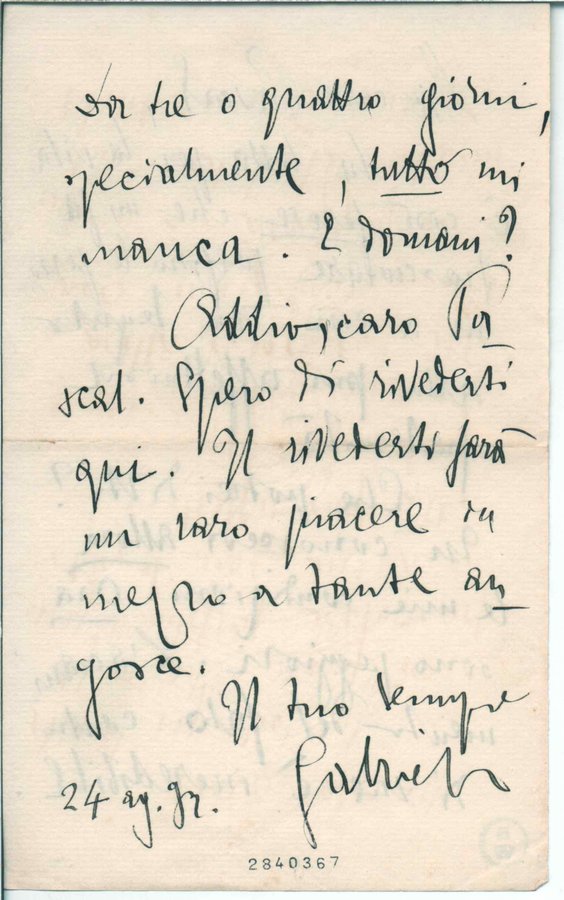 Da tre o quattro giorni,
specialmente, tutto mi
manca. E domani?
Addio, caro Pa
scal. Spero di rivederti
qui. Il rivederti sarà
un raro piacere in
mezzo a tante an
gosce.
Il tuo sempre
Gabriele
24 ag. 92.
2840367